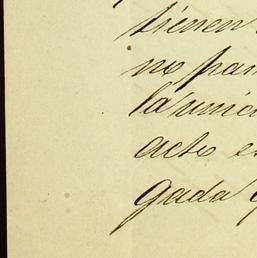 tienen
no par
la unic
acto e
gada